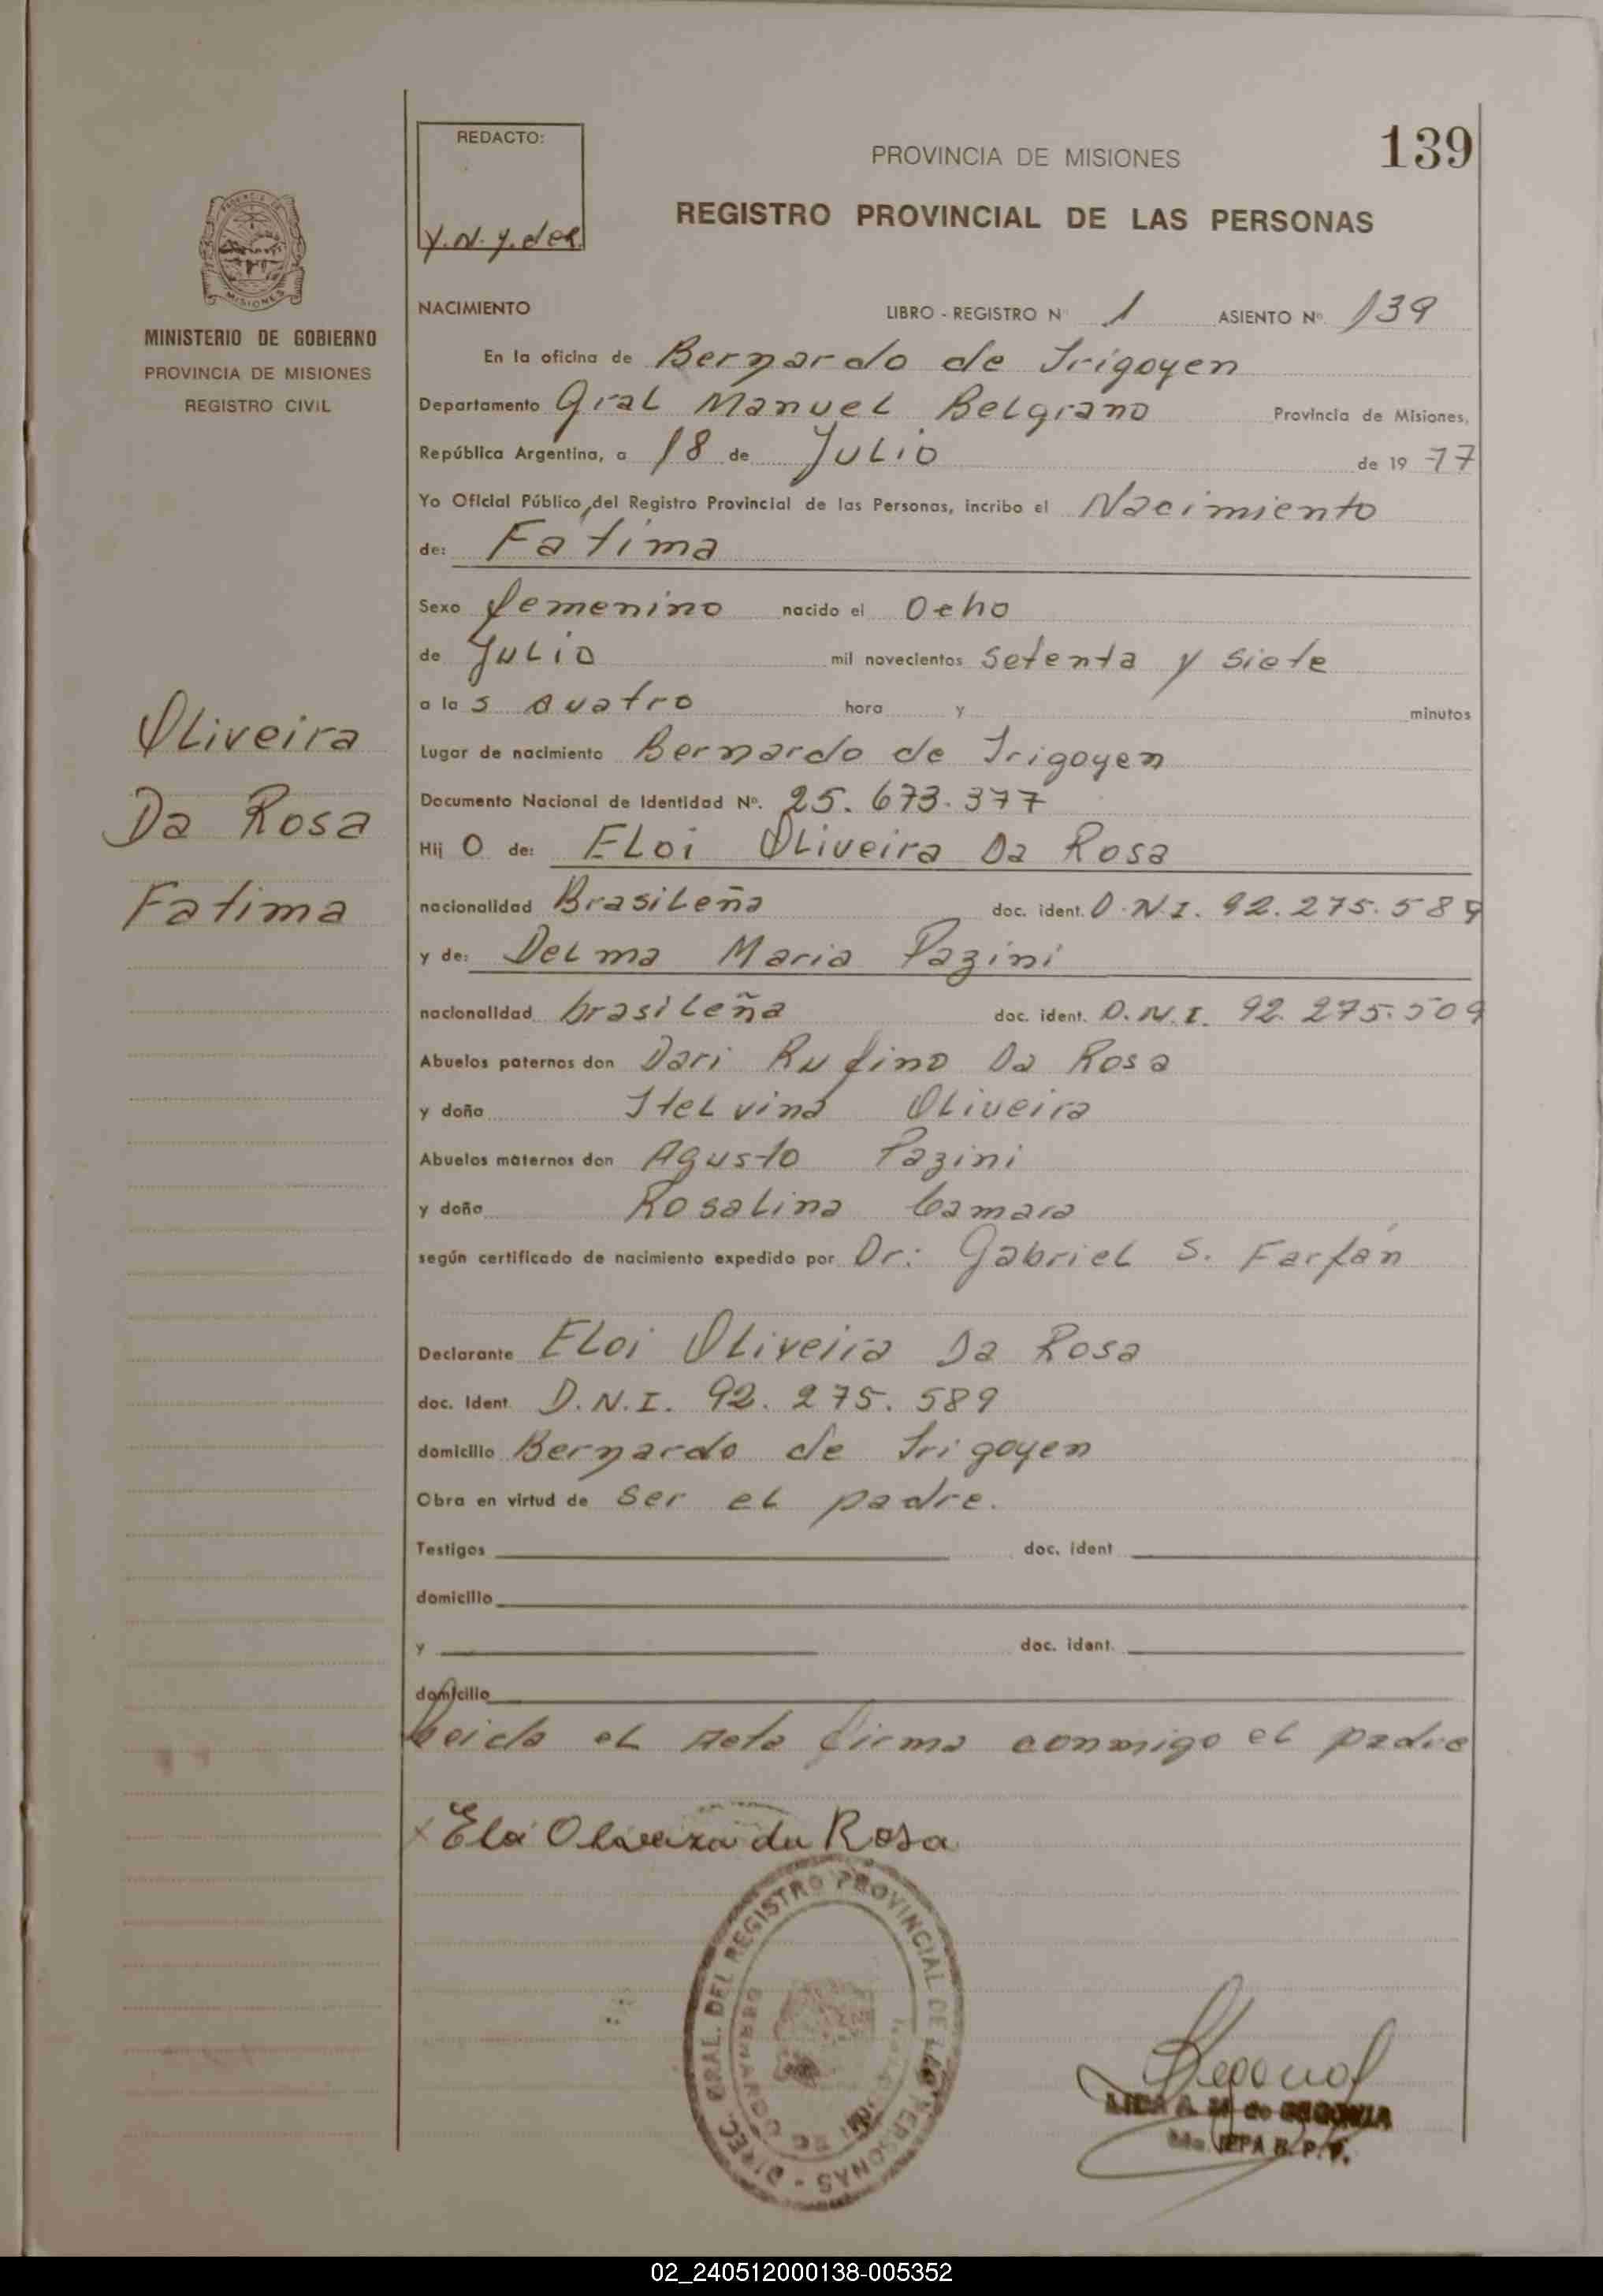 139
REDACTO:
Y.N.Y.del
PROVINCIA DE MISIONES
REGISTRO PROVINCIAL DE LAS PERSONAS
MISIONES
MINISTERIO DE GOBIERNO
PROVINCIA DE MISIONES
REGISTRO CIVIL
NACIMIENTO LIBRO - REGISTRO Nº 1 ASIENTO Nº 139
En la oficina de Bernardo de Irigoyen
Departamento Gral Manuel Belgrano Provincia de Misiones,
República Argentina, a 18 de Julio de 19 77
Yo Oficial Público, del Registro Provincial de las Personas, incribo el Nacimiento
de: Fatima
Sexo femenino nacido el Ocho
de Julio mil novecientos setenta y siete
a la s cuatro hora y minutos
Lugar de nacimiento Bernardo de Irigoyen
Documento Nacional de Identidad Nº. 25.673.377
Hij O de: ELoi Oliveira Da Rosa
nacionalidad Brasileña doc. ident. D.N.I. 92.275.589
y de: Delma Maria Pazini
nacionalidad brasileña doc. ident. D.N.I. 92.275.509
Abuelos paternos don Dari Rufino Da Rosa
y doña Itelvina Oliveira
Abuelos maternos don Agusto Pazini
y doña Rosalina Camara
según certificado de nacimiento expedido por Dr: Gabriel S. Farfán
Declarante ELoi Oliveira Da Rosa
doc. Ident. D.N.I. 92.275.589
domicilio Bernardo de Irigoyen
Obra en virtud de ser el padre.
Testigos doc. ident
domicilio
y doc. ident.
domicilio
Leida el Acta firma conmigo el padre
Oliveira
Da Rosa
Fatima
x Eloi Oliveira da Rosa
DIREC. GRAL. DEL REGISTRO PROVINCIAL DE LAS PERSONAS
de SEGOVIA
JEFA R. P. P.
02_240512000138-005352